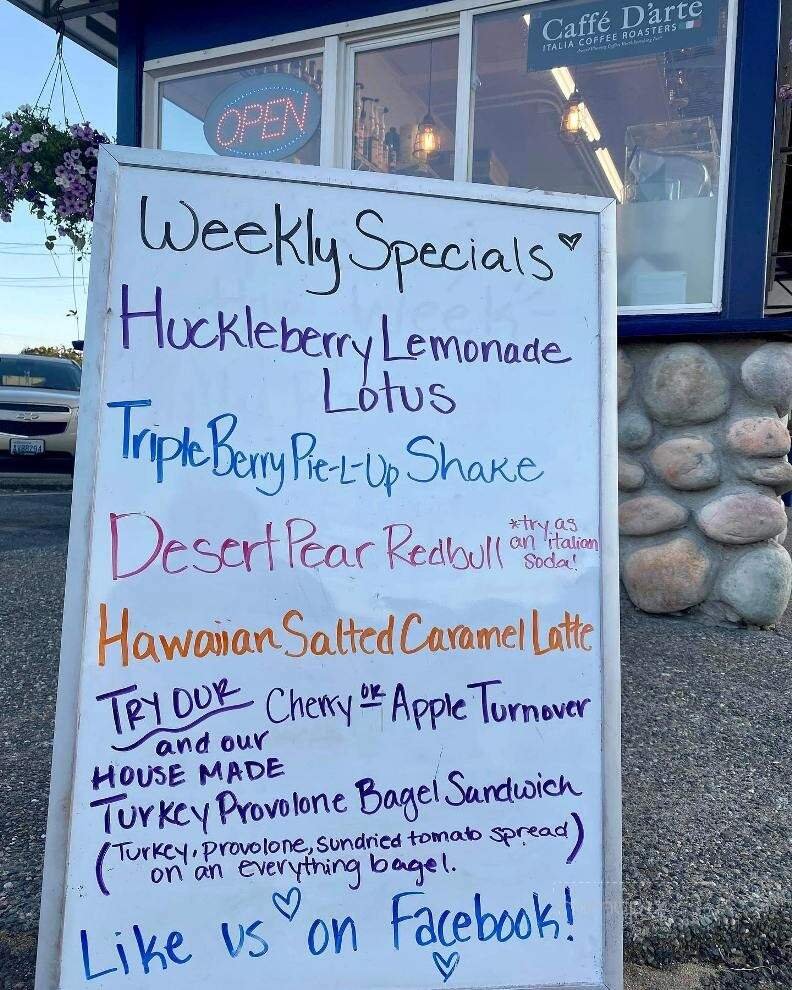 Caffé D'arte
ITALIA COFFEE ROASTERS
OPEN
Weekly Specials
Huckleberry Lemonade
Lotus
Triple Berry Pie-L-Up Shake
Desert Pear Redbull *try as
an italian
soda!
Hawaiian Salted Caramel Latte
TRY OUR Cherry OR Apple Turnover
and our
HOUSE MADE
Turkey Provolone Bagel Sandwich
(Turkey, Provolone, sundried tomato spread)
on an everything bagel.
Like us on Facebook!